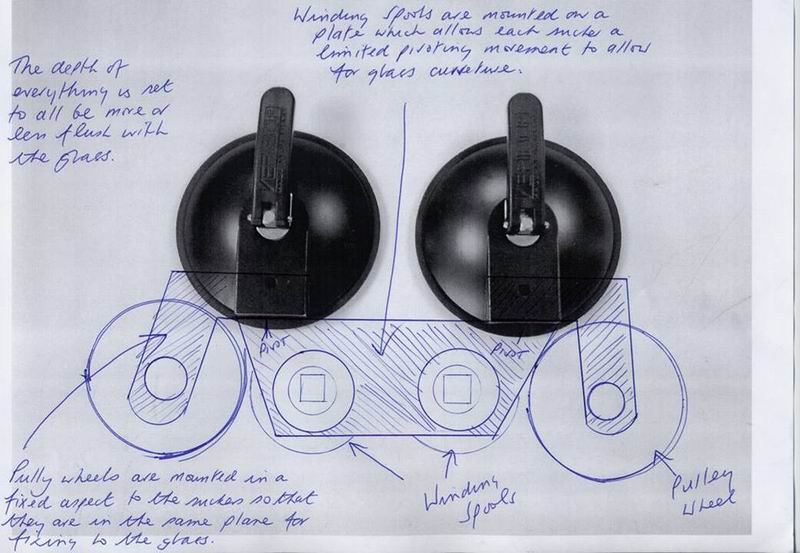 Winding Spools are mounted on a
plate which allows each sucker a
limited pivoting movement to allow
for glass curvature.
The depth of
everything is set
to all be more or
less flush with
the glass.
PIVOT
PIVOT
Pully wheels are mounted in a
fixed aspect to the suckers so that
they are in the same plane for
fixing to the glass.
Winding
Spools
Pulley
Wheel